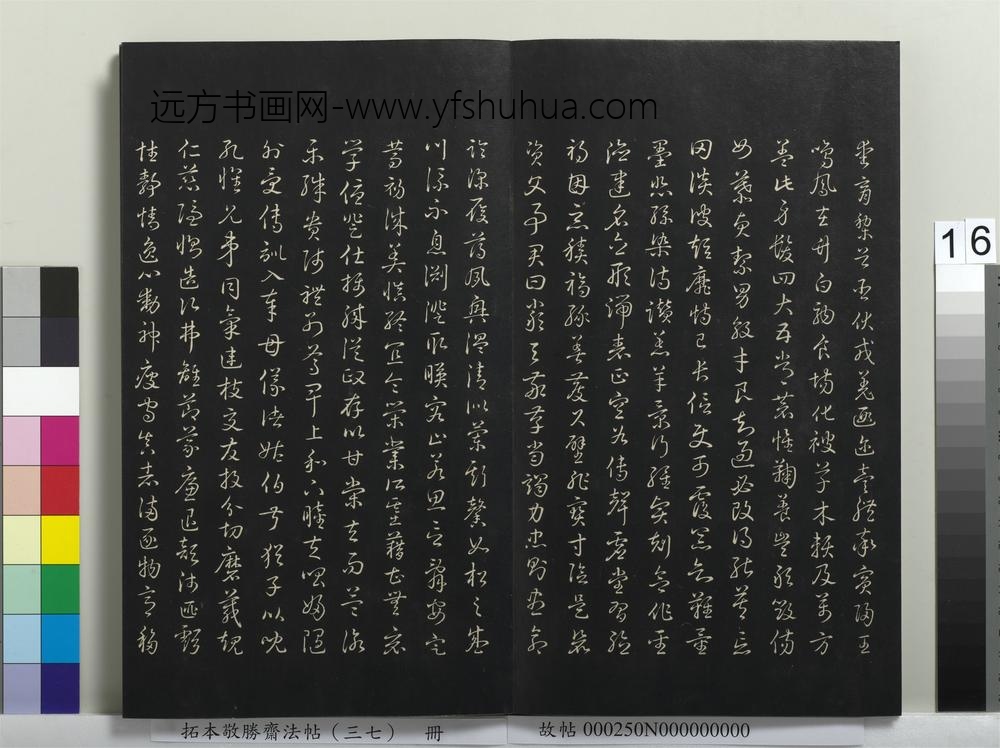 远方书画网-www.yfshuhua.com
愛育黎首臣伏戎羌遐邇壹體率賓歸王
鳴鳳在竹白駒食場化被草木賴及萬方
蓋此身髮四大五常恭惟鞠養豈敢毀傷
女慕貞絜男效才良知過必改得能莫忘
罔談彼短靡恃己長信使可覆器欲難量
墨悲絲染詩讚羔羊景行維賢剋念作聖
德建名立形端表正空谷傳聲虛堂習聽
禍因惡積福緣善慶尺璧非寶寸陰是競
資父事君曰嚴與敬孝當竭力忠則盡命
臨深履薄夙興溫凊似蘭斯馨如松之盛
川流不息淵澄取映容止若思言辭安定
篤初誠美慎終宜令榮業所基籍甚無竟
學優登仕攝職從政存以甘棠去而益詠
樂殊貴賤禮別尊卑上和下睦夫唱婦隨
外受傅訓入奉母儀諸姑伯叔猶子比兒
孔懷兄弟同氣連枝交友投分切磨箴規
仁慈隱惻造次弗離節義廉退顛沛匪虧
性靜情逸心動神疲守真志滿逐物意移
16
拓本敬勝齋法帖（三七） 冊
故帖 000250N000000000